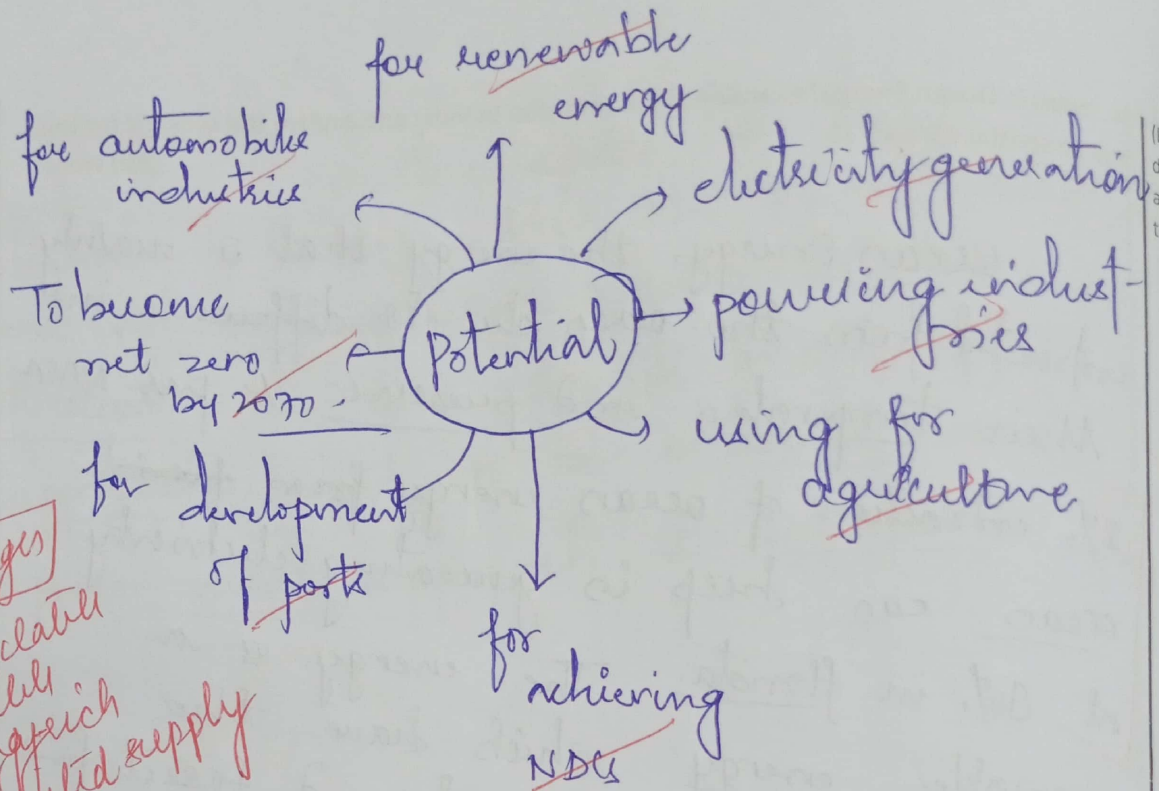 for renewable
energy
for automobile
industries
electricity generation
To become
net zero
by 2070.
potential
powering indust-
ries
using for
agriculture
for
development
of ports
for
achieving
NDCs
supply